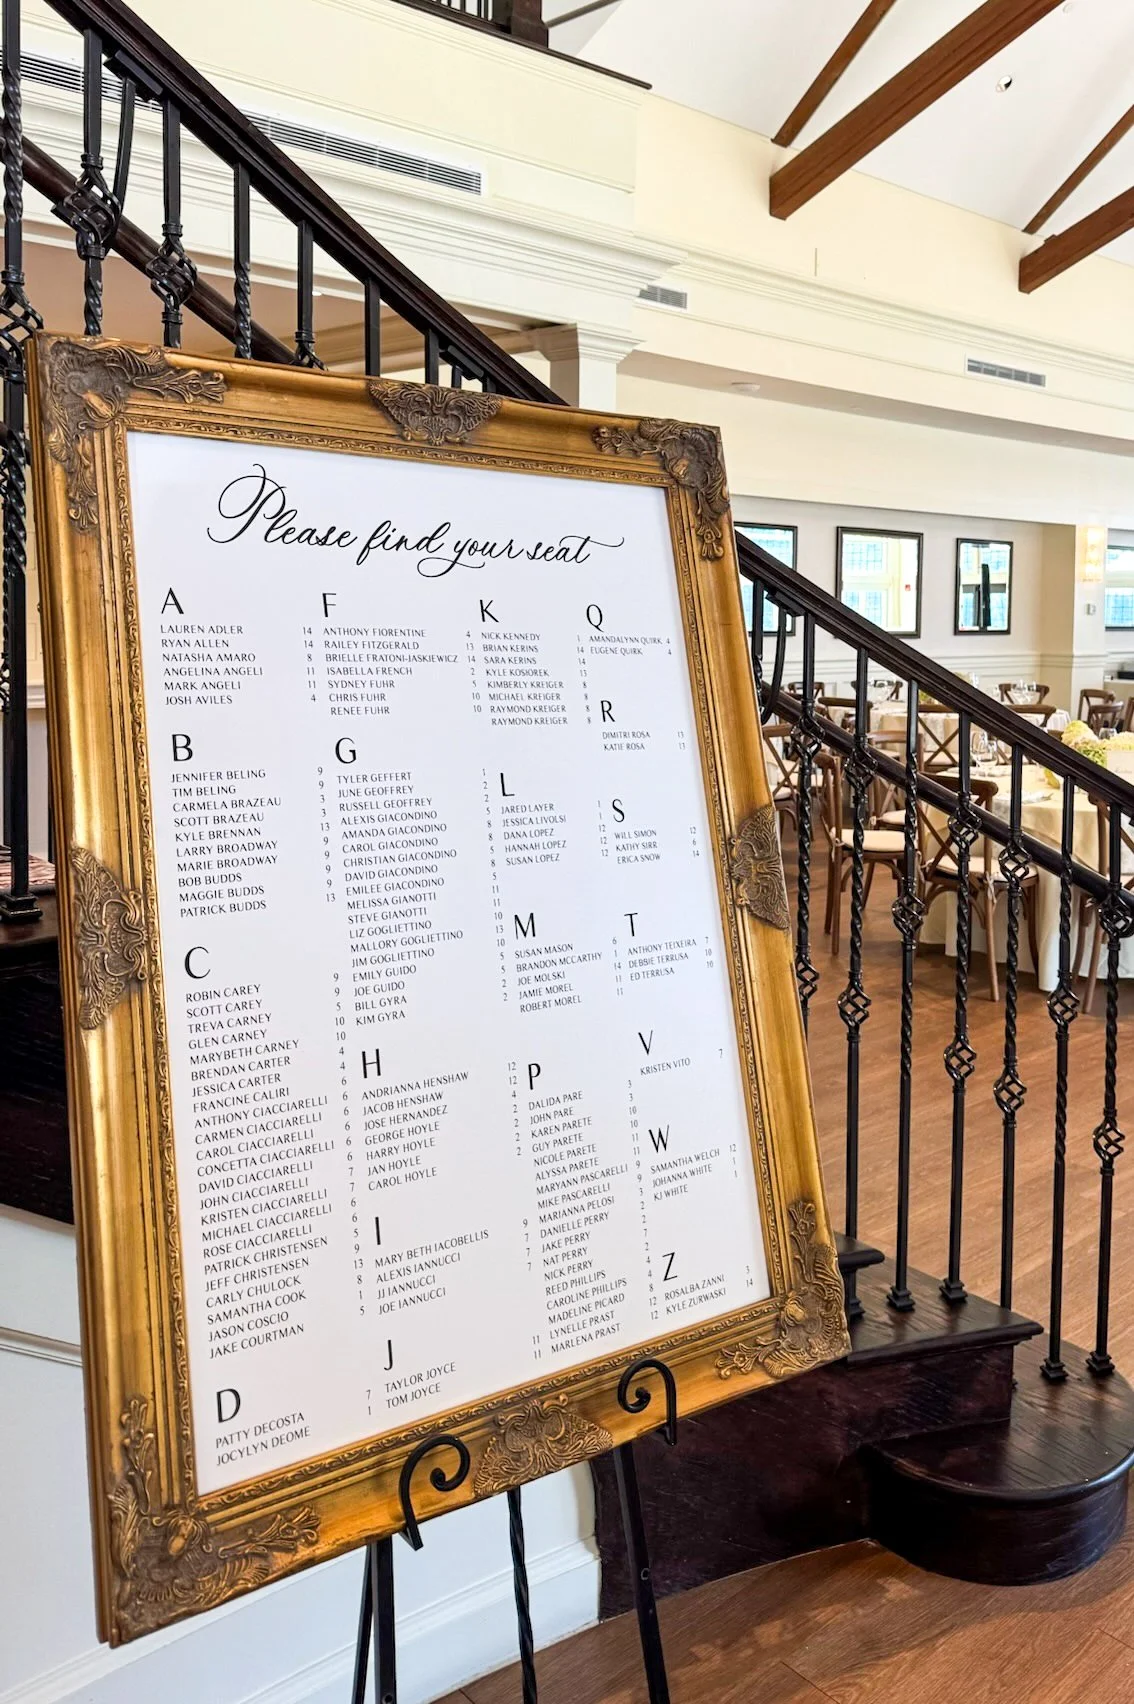 Please find your seat
A
LAUREN ADLER 14
RYAN ALLEN 14
NATASHA AMARO 8
ANGELINA ANGELI 11
MARK ANGELI 11
JOSH AVILES 4
B
JENNIFER BELING 9
TIM BELING 9
CARMELA BRAZEAU 3
SCOTT BRAZEAU 3
KYLE BRENNAN 13
LARRY BROADWAY 9
MARIE BROADWAY 9
BOB BUDDS 9
MAGGIE BUDDS 9
PATRICK BUDDS 13
C
ROBIN CAREY 9
SCOTT CAREY 9
TREVA CARNEY 5
GLEN CARNEY 10
MARYBETH CARNEY 10
BRENDAN CARTER 4
JESSICA CARTER 4
FRANCINE CALIRI 6
ANTHONY CIACCIARELLI 6
CARMEN CIACCIARELLI 6
CAROL CIACCIARELLI 6
CONCETTA CIACCIARELLI 6
DAVID CIACCIARELLI 7
JOHN CIACCIARELLI 7
KRISTEN CIACCIARELLI 6
MICHAEL CIACCIARELLI 6
ROSE CIACCIARELLI 5
PATRICK CHRISTENSEN 9
JEFF CHRISTENSEN 13
CARLY CHULOCK 8
SAMANTHA COOK 1
JASON COSCIO 5
JAKE COURTMAN
D
PATTY DECOSTA 7
JOCYLYN DEOME 1
F
ANTHONY FIORENTINE 4
RAILEY FITZGERALD 13
BRIELLE FRATONI-JASKIEWICZ 14
ISABELLA FRENCH 2
SYDNEY FUHR 5
CHRIS FUHR 10
RENEE FUHR 10
G
TYLER GEFFERT 1
JUNE GEOFFREY 2
RUSSELL GEOFFREY 2
ALEXIS GIACONDINO 5
AMANDA GIACONDINO 8
CAROL GIACONDINO 5
CHRISTIAN GIACONDINO 8
DAVID GIACONDINO 5
EMILEE GIACONDINO 11
MELISSA GIANOTTI 11
STEVE GIANOTTI 10
LIZ GOGLIETTINO 13
MALLORY GOGLIETTINO 10
JIM GOGLIETTINO 5
EMILY GUIDO 5
JOE GUIDO 2
BILL GYRA 2
KIM GYRA
H
ANDRIANNA HENSHAW 12
JACOB HENSHAW 12
JOSE HERNANDEZ 4
GEORGE HOYLE 2
HARRY HOYLE 2
JAN HOYLE 2
CAROL HOYLE 2
I
MARY BETH IACOBELLIS 9
ALEXIS IANNUCCI 7
JJ IANNUCCI 7
JOE IANNUCCI
J
TAYLOR JOYCE 11
TOM JOYCE 11
K
NICK KENNEDY 1
BRIAN KERINS 14
SARA KERINS 14
KYLE KOSIOREK 13
KIMBERLY KREIGER 8
MICHAEL KREIGER 8
RAYMOND KREIGER 8
RAYMOND KREIGER 8
L
JARED LAYER 1
JESSICA LIVOLSI 1
DANA LOPEZ 12
HANNAH LOPEZ 12
SUSAN LOPEZ 12
M
SUSAN MASON 6
BRANDON MCCARTHY 1
JOE MOLSKI 14
JAMIE MOREL 11
ROBERT MOREL 11
P
DALIDA PARE 3
JOHN PARE 3
KAREN PARETE 10
GUY PARETE 10
NICOLE PARETE 11
ALYSSA PARETE 11
MARYANN PASCARELLI 9
MIKE PASCARELLI 9
MARIANNA PELOSI 3
DANIELLE PERRY 2
JAKE PERRY 2
NAT PERRY 7
NICK PERRY 2
REED PHILLIPS 4
CAROLINE PHILLIPS 4
MADELINE PICARD 8
LYNELLE PRAST 12
MARLENA PRAST 12
Q
AMANDALYNN QUIRK 4
EUGENE QUIRK 4
R
DIMITRI ROSA 13
KATIE ROSA 13
S
WILL SIMON 12
KATHY SIRR 6
ERICA SNOW 14
T
ANTHONY TEIXEIRA 7
DEBBIE TERRUSA 10
ED TERRUSA 10
V
KRISTEN VITO 7
W
SAMANTHA WELCH 12
JOHANNA WHITE 1
KJ WHITE 1
Z
ROSALBA ZANNI 3
KYLE ZURWASKI 14